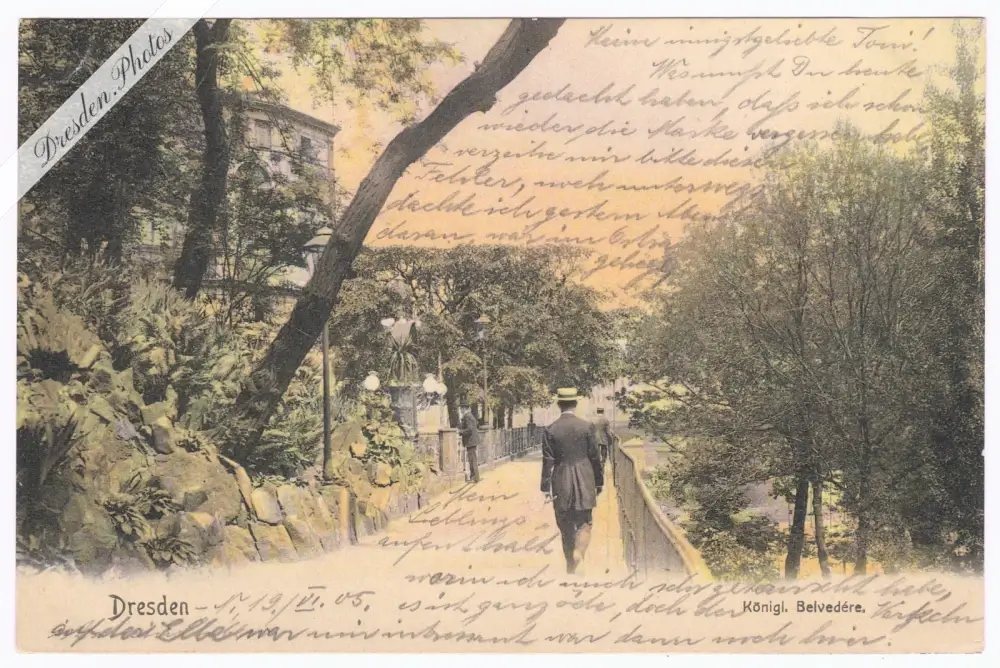 Dresden.Photos
Meine innigstgeliebte Toni!
Was mußt Du heute
gedacht haben, daß ich schon
wieder die Marke vergessen habe,
verzeihe mir bitte diesen
Fehler, noch unterwegs
dachte ich gestern Abend
daran, war im
Mein
Lieblings
aufenthalt
worin ich mich sehr getäuscht habe,
Dresden – N. 19./VI. 05. es ist ganz öde, doch der Königl. Belvedére. Verkehr
auf der Elbe war mir interessant war dann noch hier.